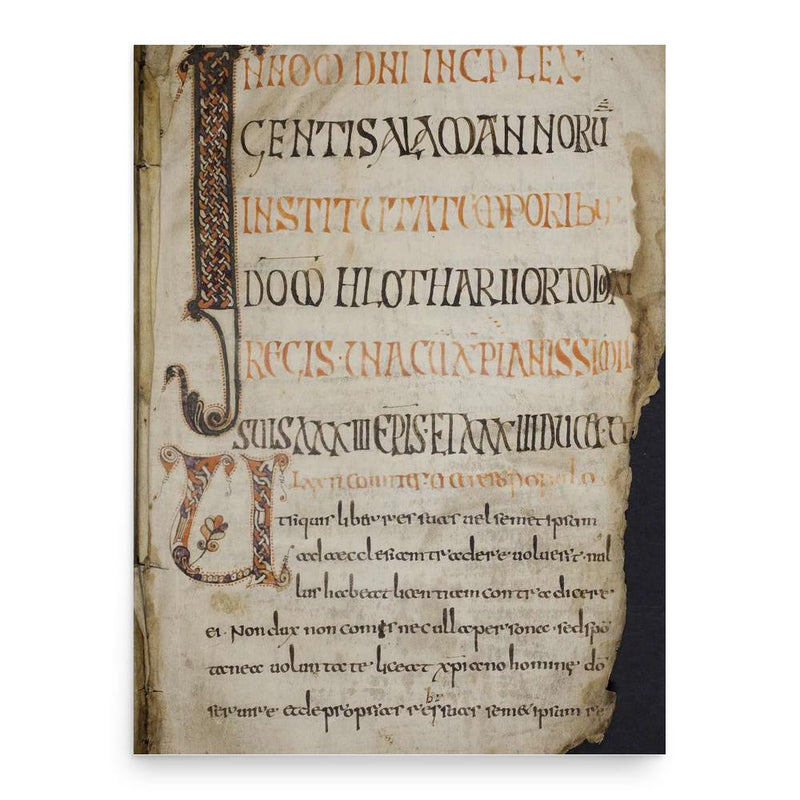 IN NOM DNI INCP LEX
GENTIS ALAMANNORŪ
INSTITUTA TEMPORIBU
DOM HLOTHARII ORTODOXI
REGIS· UNA CŪ XPIANISSIMIS
SUIS XXXIII EPIS· ET XXXIIII DUCA
LXXII comites & cetero populo
Ut siquis liber res suas uel semetipsum
ad aecclesiam tradere uoluerit· nul
lus habeat licentiam contradicere
ei· Non dux non comis nec ulla persona· sed spon
tanea uoluntate· liceat xpiano homine dō
seruire· & de proprias res suas semetipsum re